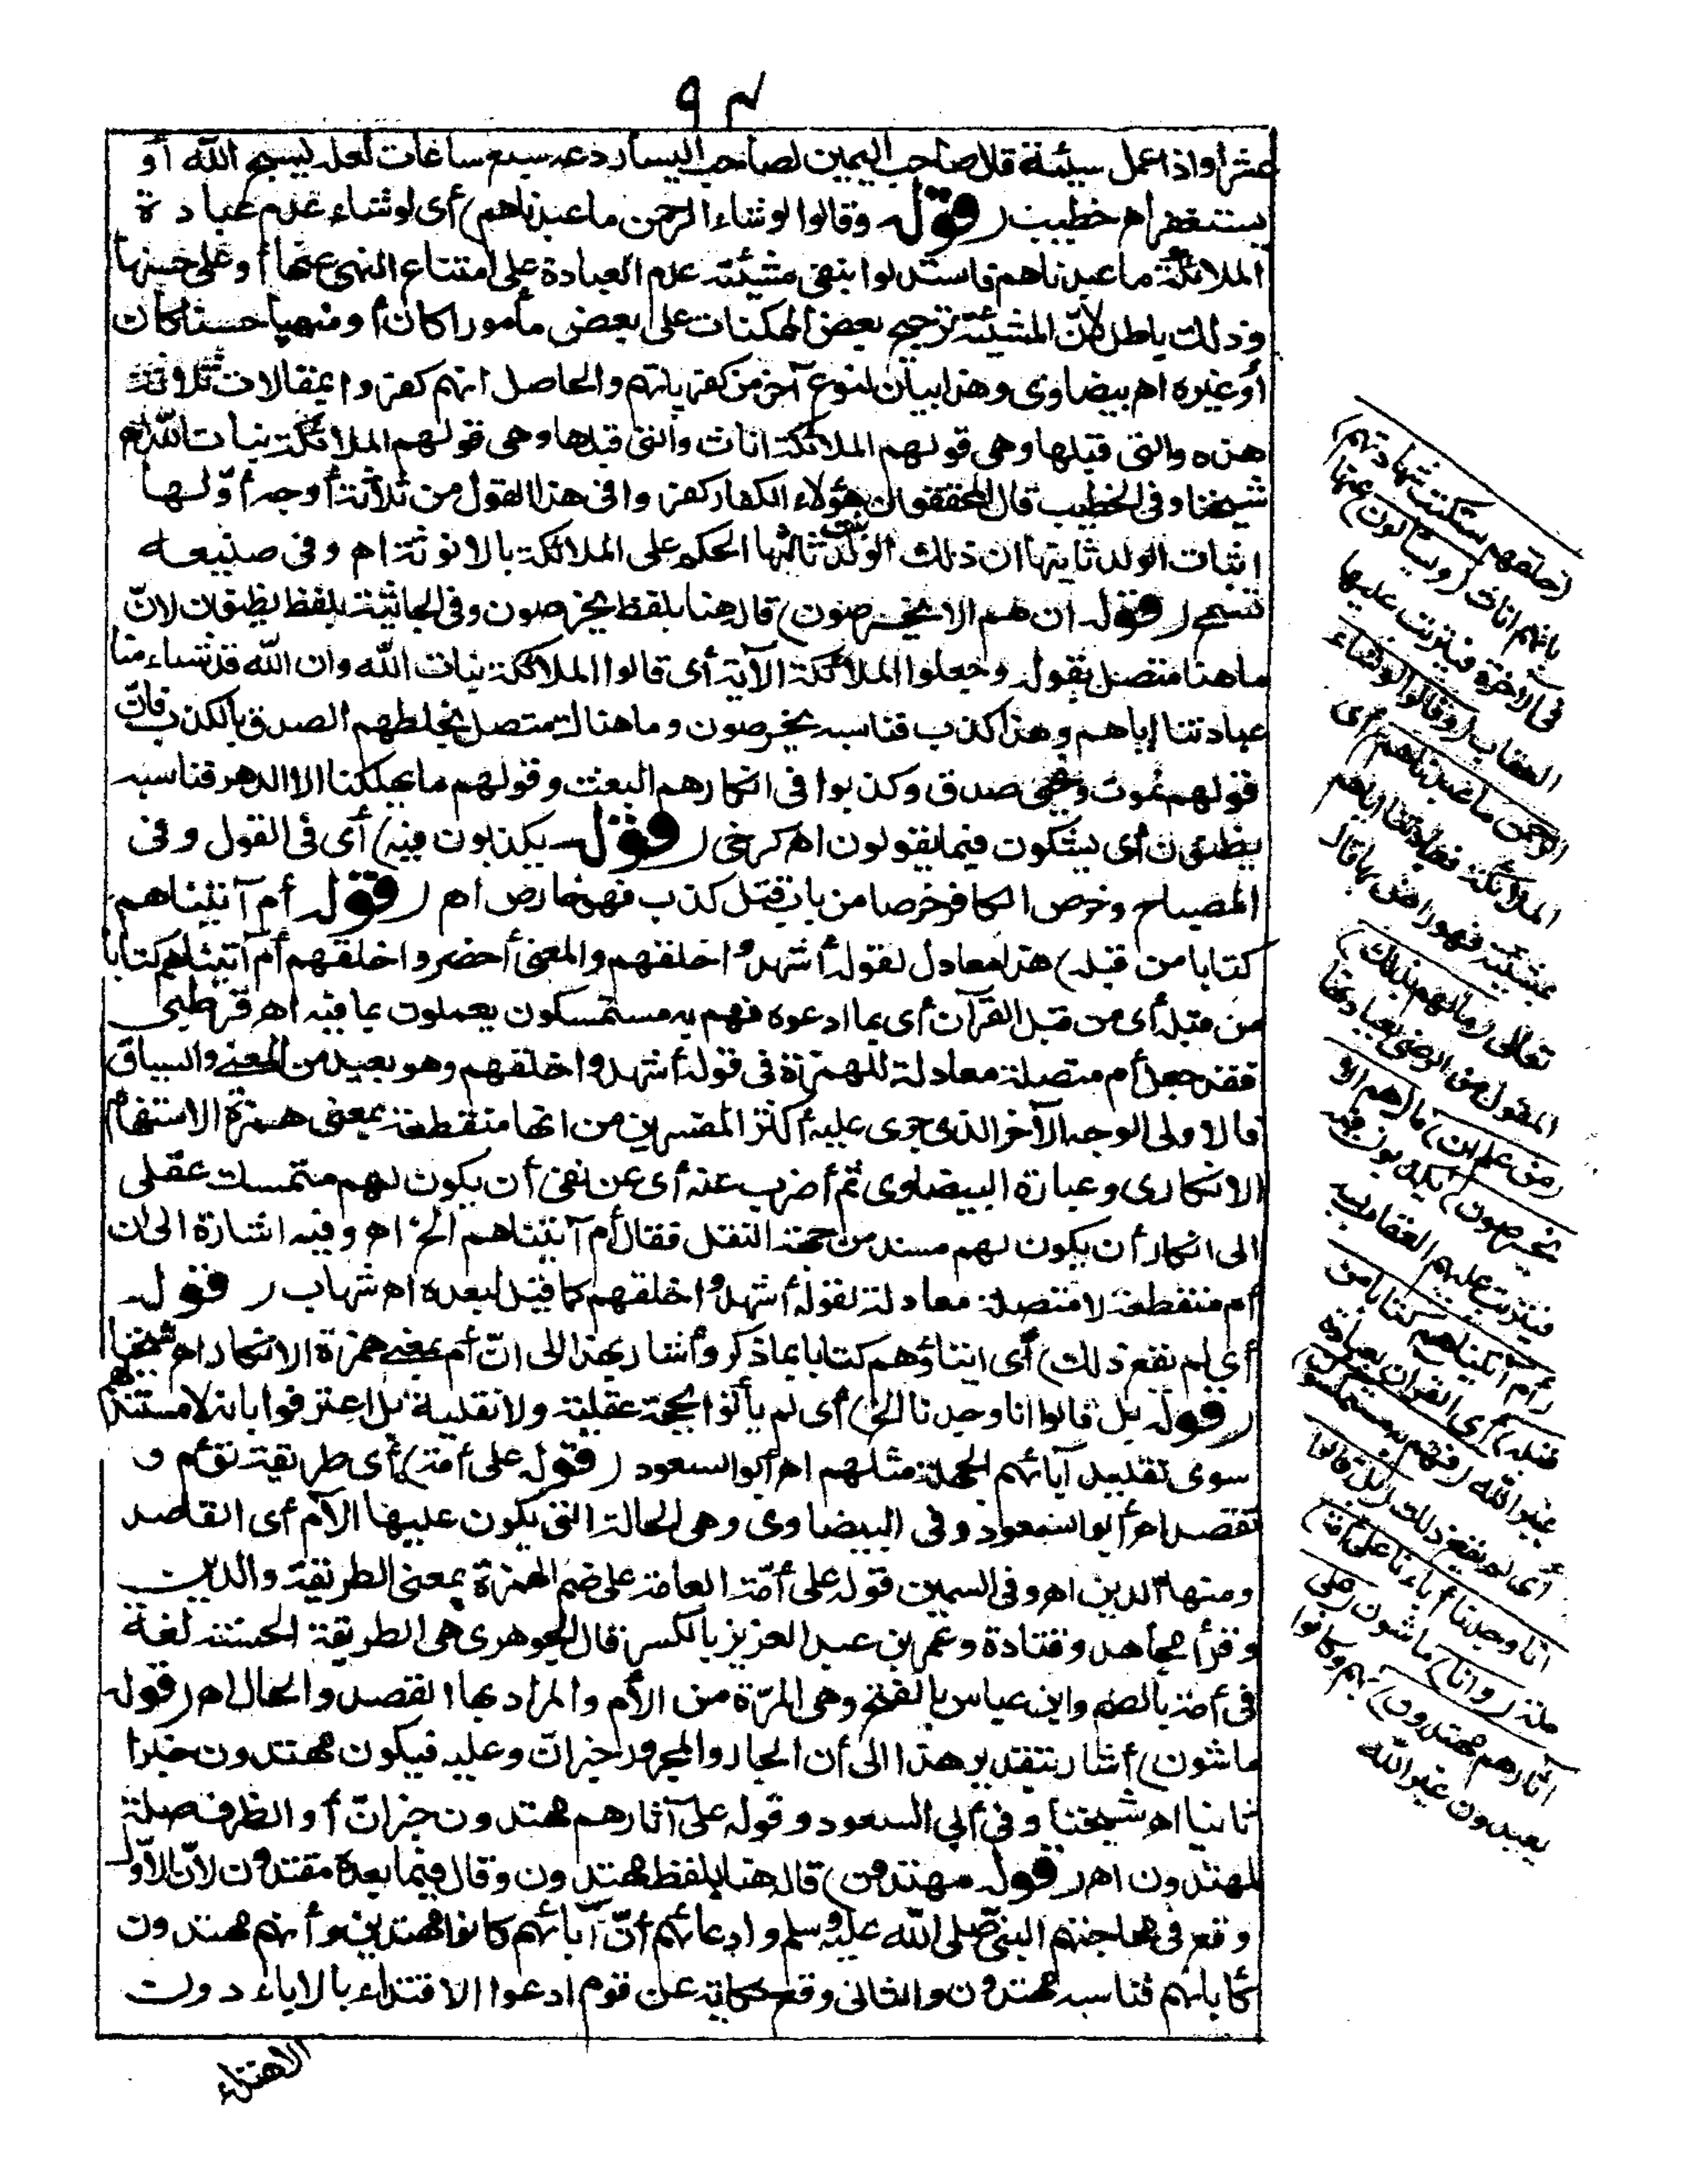 ٩٣
عشرا واذا عمل سيئة قال صاحب اليمين لصاحب اليسار دعه سبع ساعات لعله يسبح الله أو
يستغفر اه خطيب (قوله وقالوا لو شاء الرحمن ما عبدناهم) أى لو شاء عدم عبادة
الملائكة ما عبدناهم فاستدلوا بنفى مشيئته عدم العبادة على امتناع النهى عنها أو على حسنها
وذلك باطل لأنّ المشيئة ترجيح بعض الممكنات على بعض مأمورا كان أو منهيا حسنا كان
أو غيره اه بيضاوى وهذا بيان لنوع آخر من كفرياتهم والحاصل انهم كفروا بمقالات ثلاثة
هذه والتى قبلها وهى قولهم الملائكة اناث والتى قبلها وهى قولهم الملائكة بنات الله اه
شيخنا وفى الخطيب قال المحققون هؤلاء الكفار كفروا فى هذا القول من ثلاثة أوجه أوّلها
اثبات الولد ثانيها ان ذلك الولد بنت ثالثها الحكم على الملائكة بالانوثة اه وفى صنيعه
تسمح (قوله ان هم الا يخرصون) قاله هنا بلفظ يخرصون وفى الجاثية بلفظ يظنون لانّ
ما هنا متصل بقوله وجعلوا الملائكة الآية أى قالوا الملائكة بنات الله وان الله قد شاء منا
عبادتنا إياهم وهذا كذب فناسبه يخرصون وما هناك متصل بخلطهم الصدق بالكذب فانّ
قولهم نموت ونحيى صدق وكذبوا فى انكارهم البعث وقولهم ما يهلكنا الا الدهر فناسبه
يظنون أى يشكون فيما يقولون اه كرخى (قوله يكذبون فيه) أى فى القول وفى
المصباح وخرص الكافر خرصا من باب قتل كذب فهو خارص اه (قوله أم آتيناهم
كتابا من قبله) هذا معادل لقوله أشهدوا خلقهم والمعنى أحضروا خلقهم أم آتيناهم كتابا
من قبله أى من قبل القرآن أى بما ادعوه فهم به مستمسكون يعملون بما فيه اه قرطبى
فقد جعل أم متصلة معادلة للهمزة فى قوله أشهدوا خلقهم وهو بعيد من المعنى والسياق
فالاولى الوجه الآخر الذى جرى عليه أكثر المفسرين من انها منقطعة بمعنى همزة الاستفهام
الانكارى وعبارة البيضاوى ثم أضرب عنه أى عن نفى أن يكون لهم متمسك عقلى
الى انكار أن يكون لهم مسند من جهة النقل فقال أم آتيناهم الخ اه وفيه اشارة الى ان
أم منقطعة لا متصلة معادلة لقوله أشهدوا خلقهم كما قيل لبعده اه شهاب (قوله
أى لم يقع ذلك) أى ايتاؤهم كتابا بما ذكر وأشار بهذا الى انّ أم بمعنى همزة الانكار اه شيخنا
(قوله بل قالوا انا وجدنا الخ) أى لم يأتوا بحجة عقلية ولا نقلية بل اعترفوا بانه لا مستند لهم
سوى تقليد آبائهم الجهلة مثلهم اه أبو السعود (قوله على أمة) أى طريقة تؤم و
تقصد اه أبو السعود وفى البيضاوى وهى الحالة التى يكون عليها الآم أى القاصد
ومنها الدين اه وفى السمين قوله على أمّة العامة على ضم الهمزة بمعنى الطريقة والدين
وقرأ مجاهد وقتادة وعمر بن عبد العزيز بالكسر قال الجوهرى هى الطريقة الحسنة لغة
فى أمة بالضم وابن عباس بالفتح وهى المرّة من الأم والمراد بها القصد والحال اه (قوله
ماشون) أشار بتقدير هذا الى أن الجار والمجرور خبر انّ وعليه فيكون مهتدون خبرا
ثانيا اه شيخنا وفى أبى السعود وقوله على آثارهم مهتدون خبر انّ أو الظرف صلة
لمهتدون اه (قوله مهتدون) قاله هنا بلفظ مهتدون وقال فيما بعده مقتدون لأنّ الأوّل
وقع فى محاجتهم النبىّ صلى الله عليه وسلم وادعائهم أنّ آبائهم كانوا مهتدين وأنهم مهتدون
كآبائهم فناسبه مهتدون والثانى وقع حكاية عن قوم ادعوا الاقتداء بالاباء دون
الاهتداء
(خلقهم ستكتب شهادتهم)
بانهم اناث (ويسألون) عنها
فى الآخرة فيترتب عليها
العقاب (وقالوا لو شاء
الرحمن ما عبدناهم) أى
الملائكة فعبادتنا اياهم
بمشيئته فهو راض بها قال
تعالى (ما لهم بذلك)
المقول من الرضى بعبادتها
(من علم ان) ما (هم الا
يخرصون) يكذبون فيه
فيترتب عليهم العقاب به
(أم آتيناهم كتابا من
قبله) أى القرآن بعبادة
غير الله (فهم به مستمسكون)
أى لم يقع ذلك (بل قالوا
انا وجدنا آباءنا على أمة)
ملة (وانا) ماشون (على
آثارهم مهتدون) بهم وكانوا
يعبدون غير الله